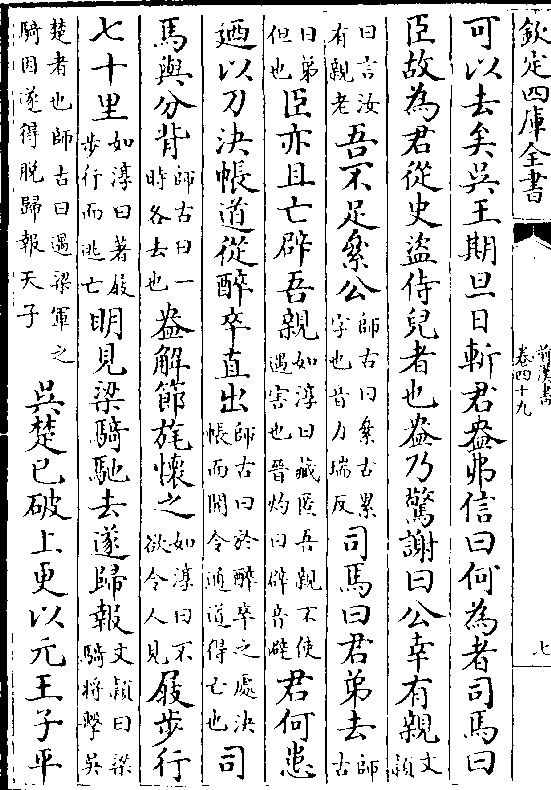 欽定四庫全書
前漢書
卷四十九
七
可以去矣吳王期旦日斬君盎弗信曰何為者司馬曰
臣故為君從史盜侍兒者也盎乃驚謝曰公幸有親文穎
曰言汝有親老吾不足絫公師古曰絫古累字也音力瑞反司馬曰君弟去師古
曰弟但也臣亦且亡辟吾親如淳曰藏匿吾親不使遇害也晉灼曰辟音避君何患
迺以刀決帳道從醉卒直出師古曰於醉卒之處決帳而開令通道得亡也司
馬與分背師古曰一時各去也盎解節旄懷之如淳曰不欲令人見屐步行
七十里如淳曰著屐步行而逃亡明見梁騎馳去遂歸報文穎曰梁騎將擊吳
楚者也師古曰遇梁軍之騎因遂得脫歸報天子吳楚已破上更以元王子平